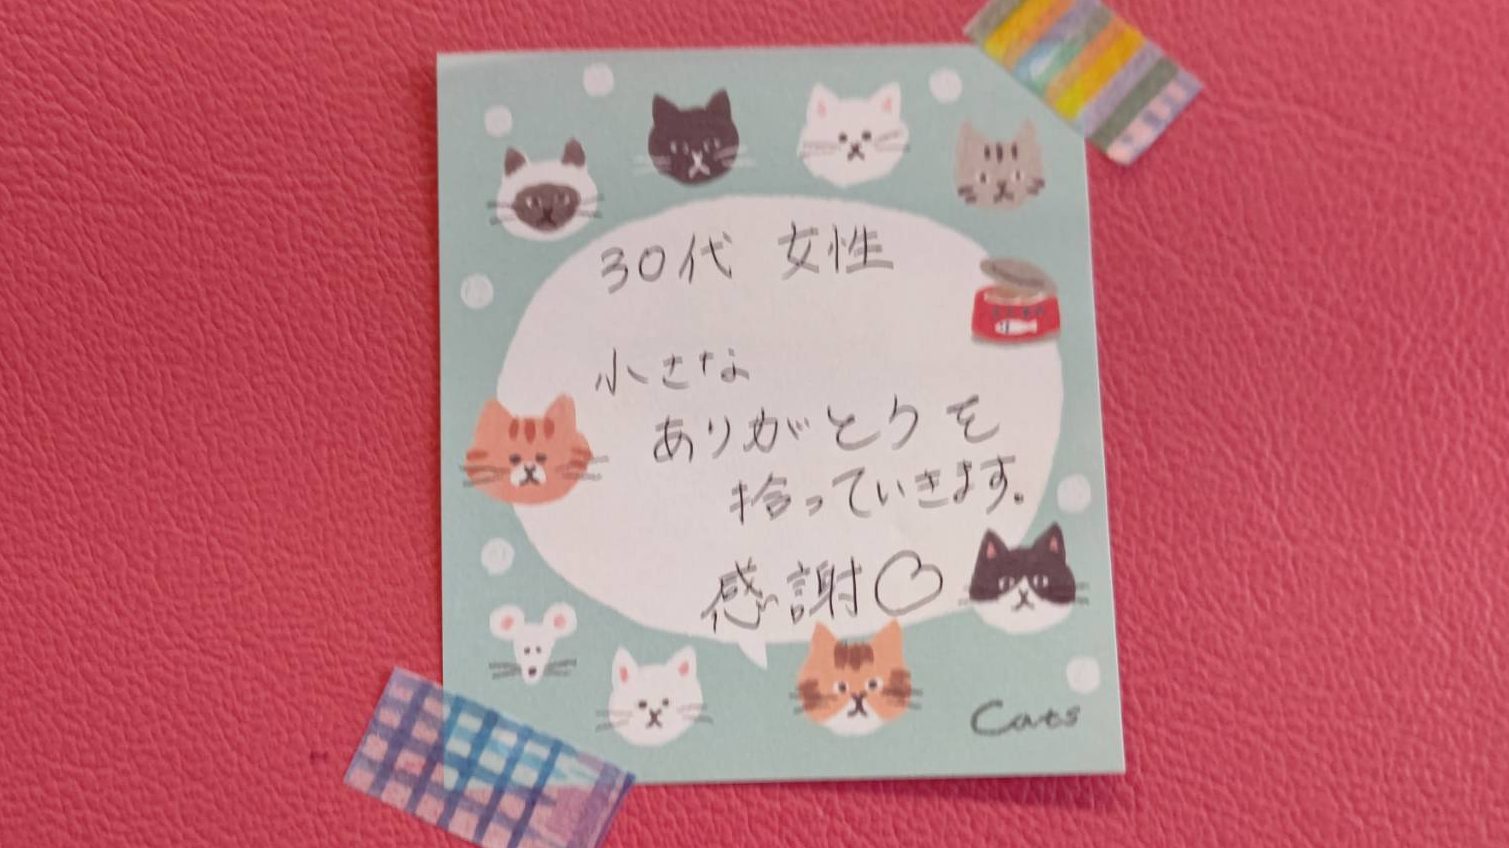 30代 女性
小さな
ありがとうを
拾っていきます。
感謝♡
Cats